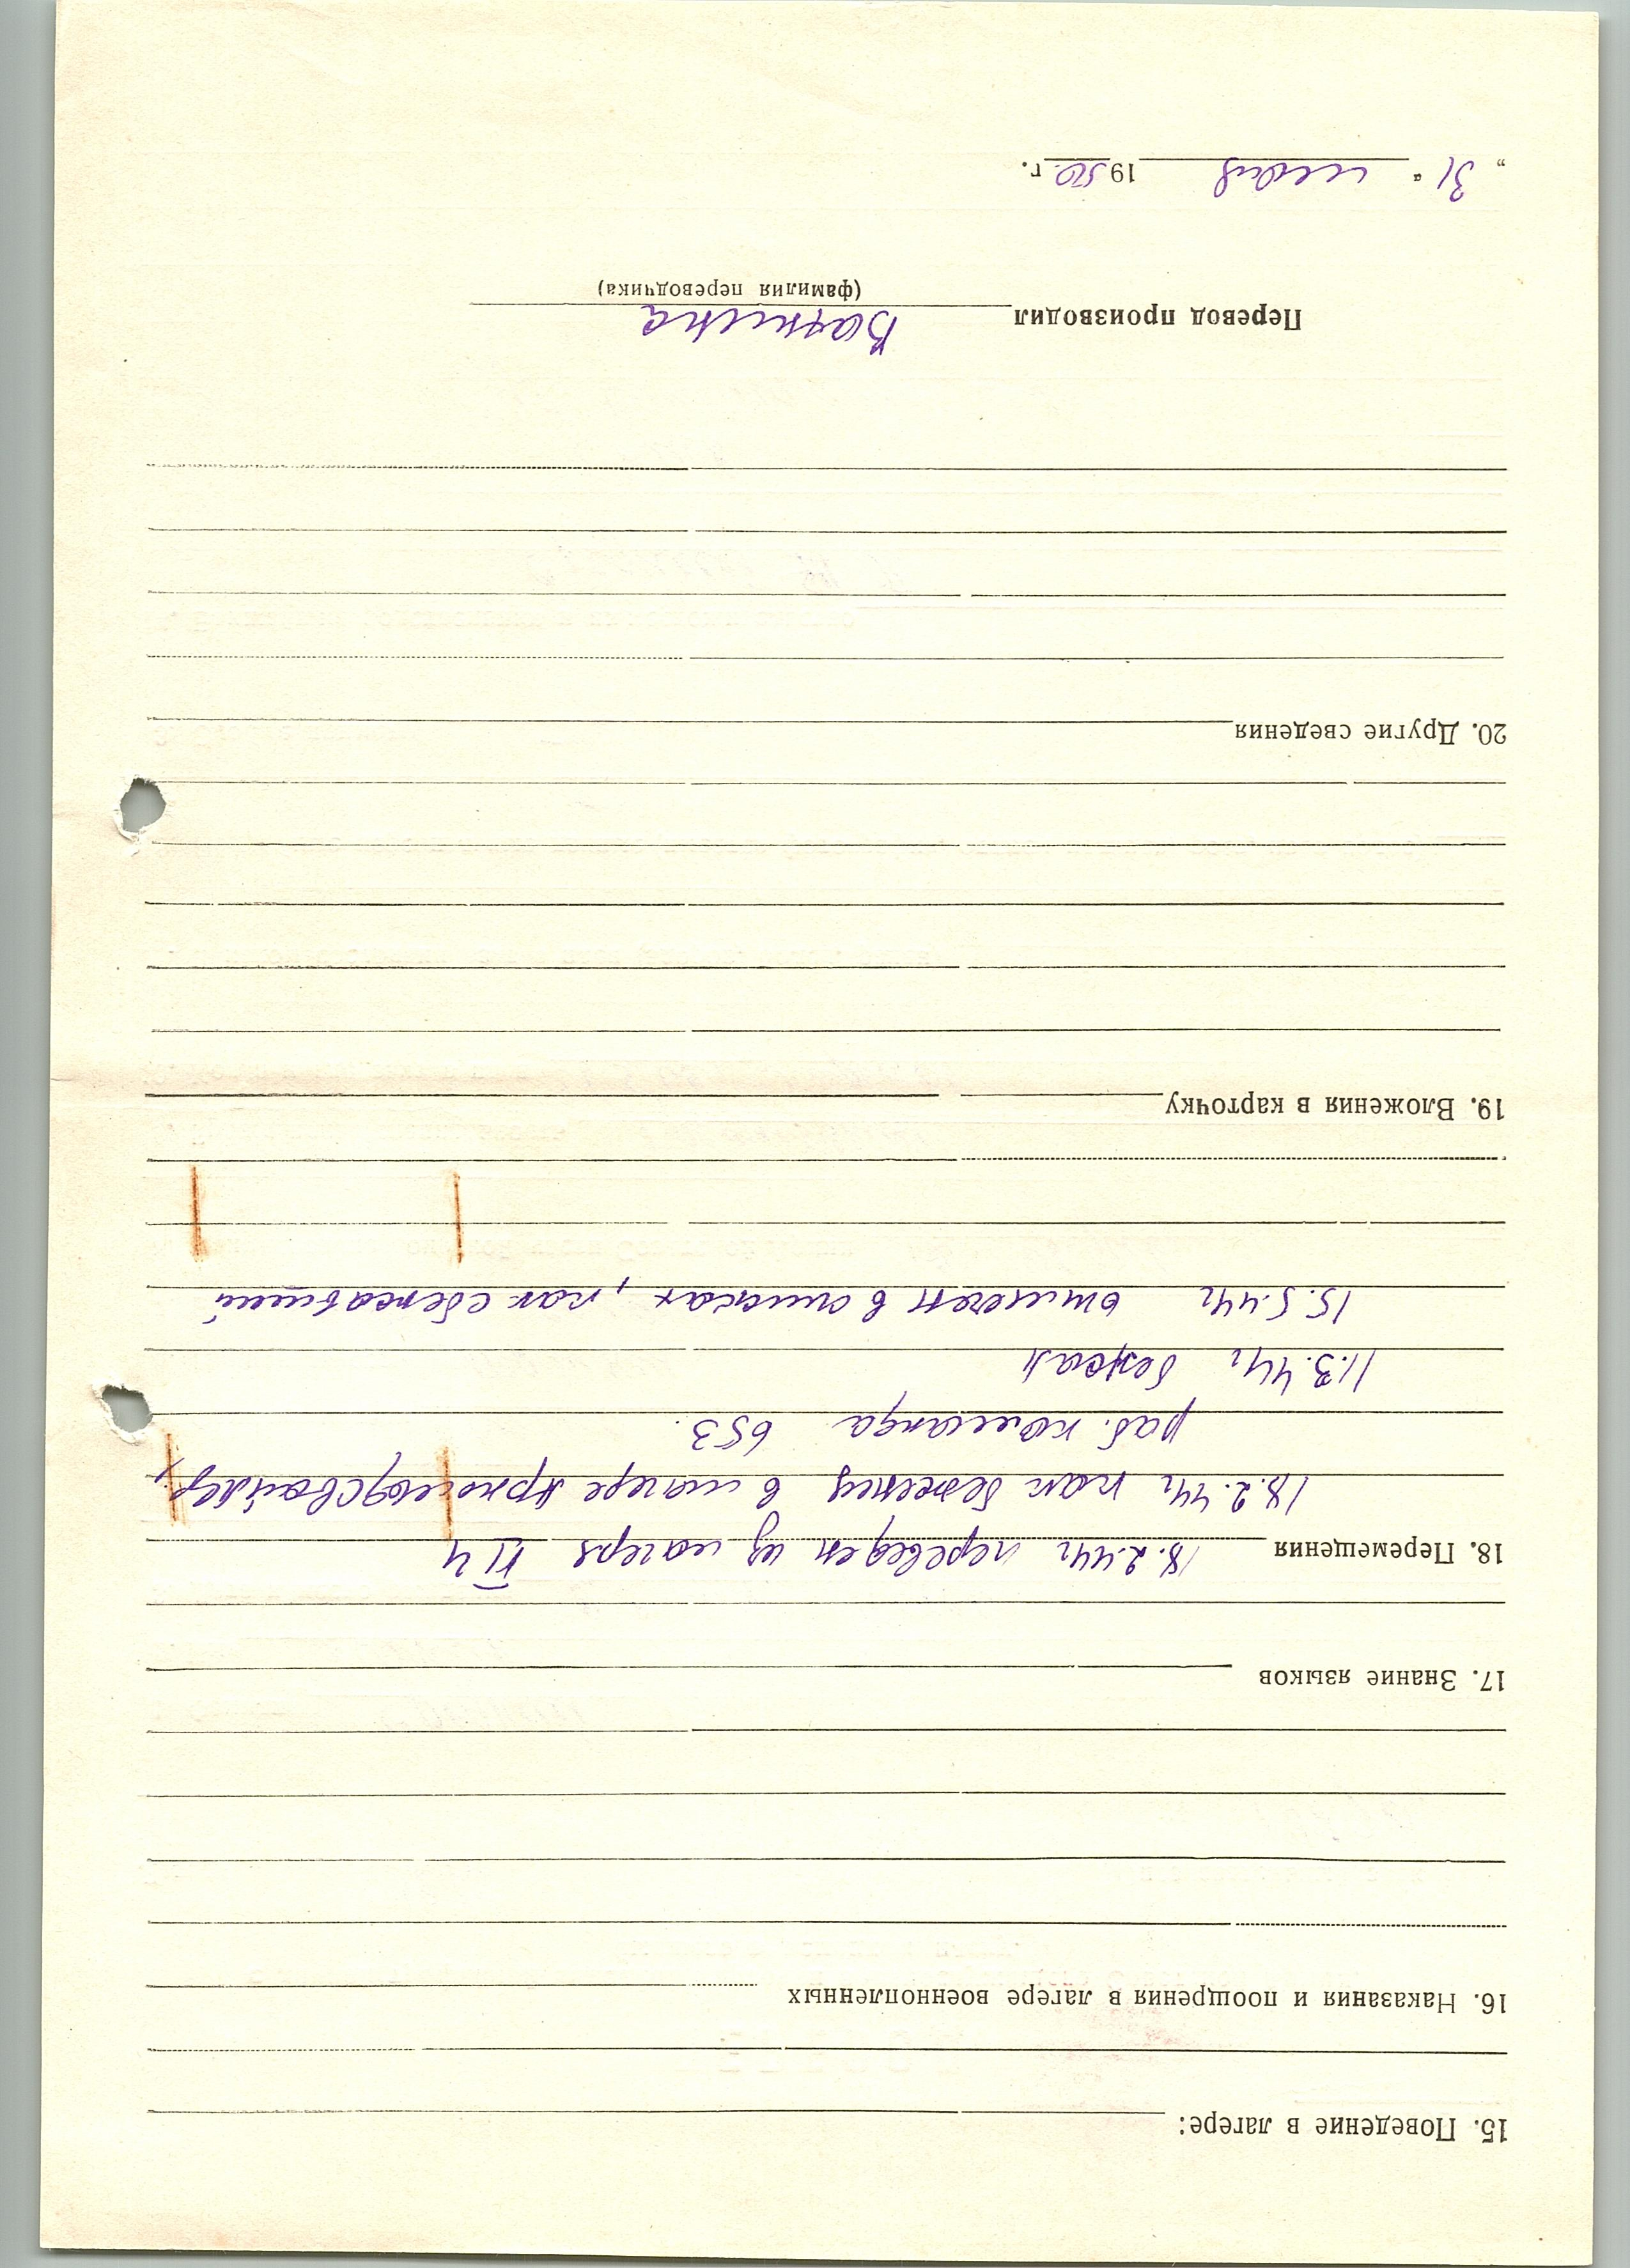 15. Поведение в лагере:
16. Наказания и поощрения в лагере военнопленных
17. Знание языков
18. Перемещения 18.2.44г переведен из лагеря П4
18.2.44г как беженец в лагере Арнольдсвайлер,
раб. команда 653.
11.3.44г бежал
15.5.44г отмечен в списках, как сбежавший
19. Вложения в карточку
20. Другие сведения
Перевод производил
(фамилия переводчика)
„31“ июля 1950 г.